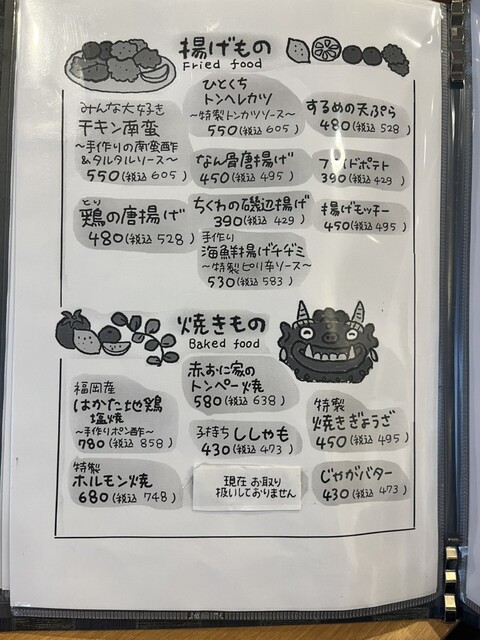 揚げもの
Fried food
みんな大好き
チキン南蛮
〜手作りの南蛮酢
&タルタルソース〜
550(税込 605)
ひとくち
トンヘレカツ
〜特製トンカツソース〜
550(税込 605)
するめの天ぷら
480(税込 528)
なん骨唐揚げ
450(税込 495)
フライドポテト
390(税込 429)
とり
鶏の唐揚げ
480(税込 528)
ちくわの磯辺揚げ
390(税込 429)
揚げモッチー
450(税込 495)
手作り
海鮮揚げチヂミ
〜特製ピリ辛ソース〜
530(税込 583)
焼きもの
Baked food
赤おに家の
トンペー焼
580(税込 638)
福岡産
はかた地鶏
塩焼
〜手作りポン酢〜
780(税込 858)
子持ちししゃも
430(税込 473)
特製
焼きぎょうざ
450(税込 495)
特製
ホルモン焼
680(税込 748)
現在 お取り
扱いしておりません
じゃがバター
430(税込 473)